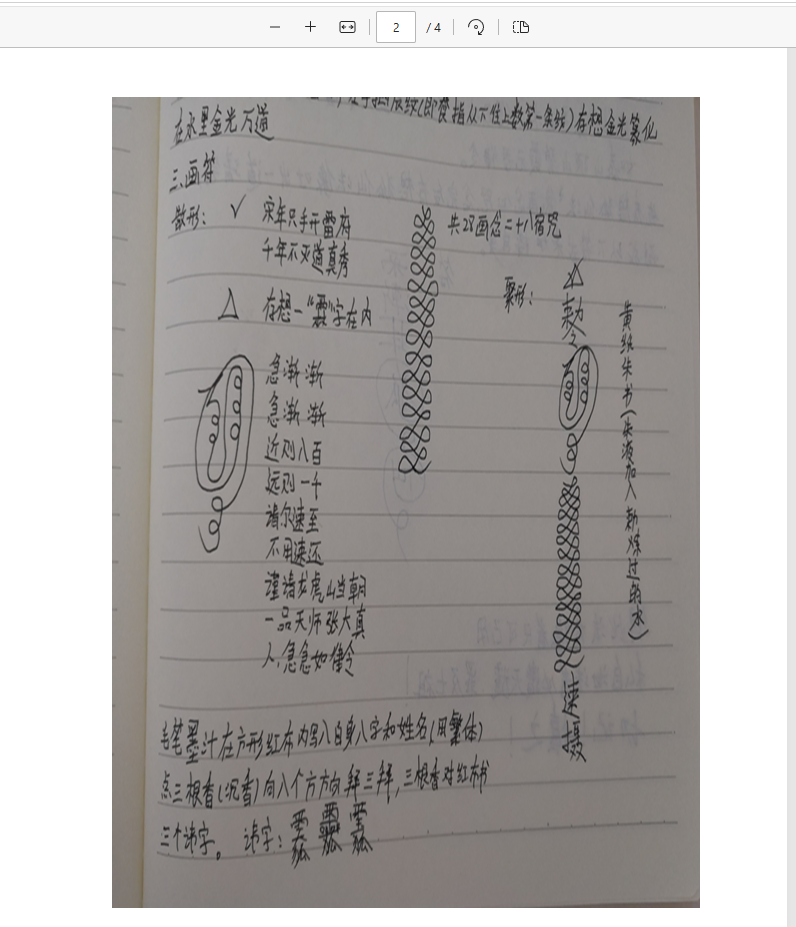 2 / 4
在水里金光万道
三、画符
散形：
宋年只手开雷府
千年不灭道真秀
共28画念二十八宿咒
存想一“霐”字在内
聚形：
敕令
急渐渐
急渐渐
近则八百
远则一千
请尔速至
不用速还
谨请龙虎山当朝
一品天师张大真
人，急急如律令
黄纸朱书（朱液加入敕炼过的水）
速摄
毛笔墨汁在方形红布内写入自身八字和姓名（用繁体）
点三根香（沉香）向八个方方向拜三拜，三根香对红布书
三个讳字。 讳字：